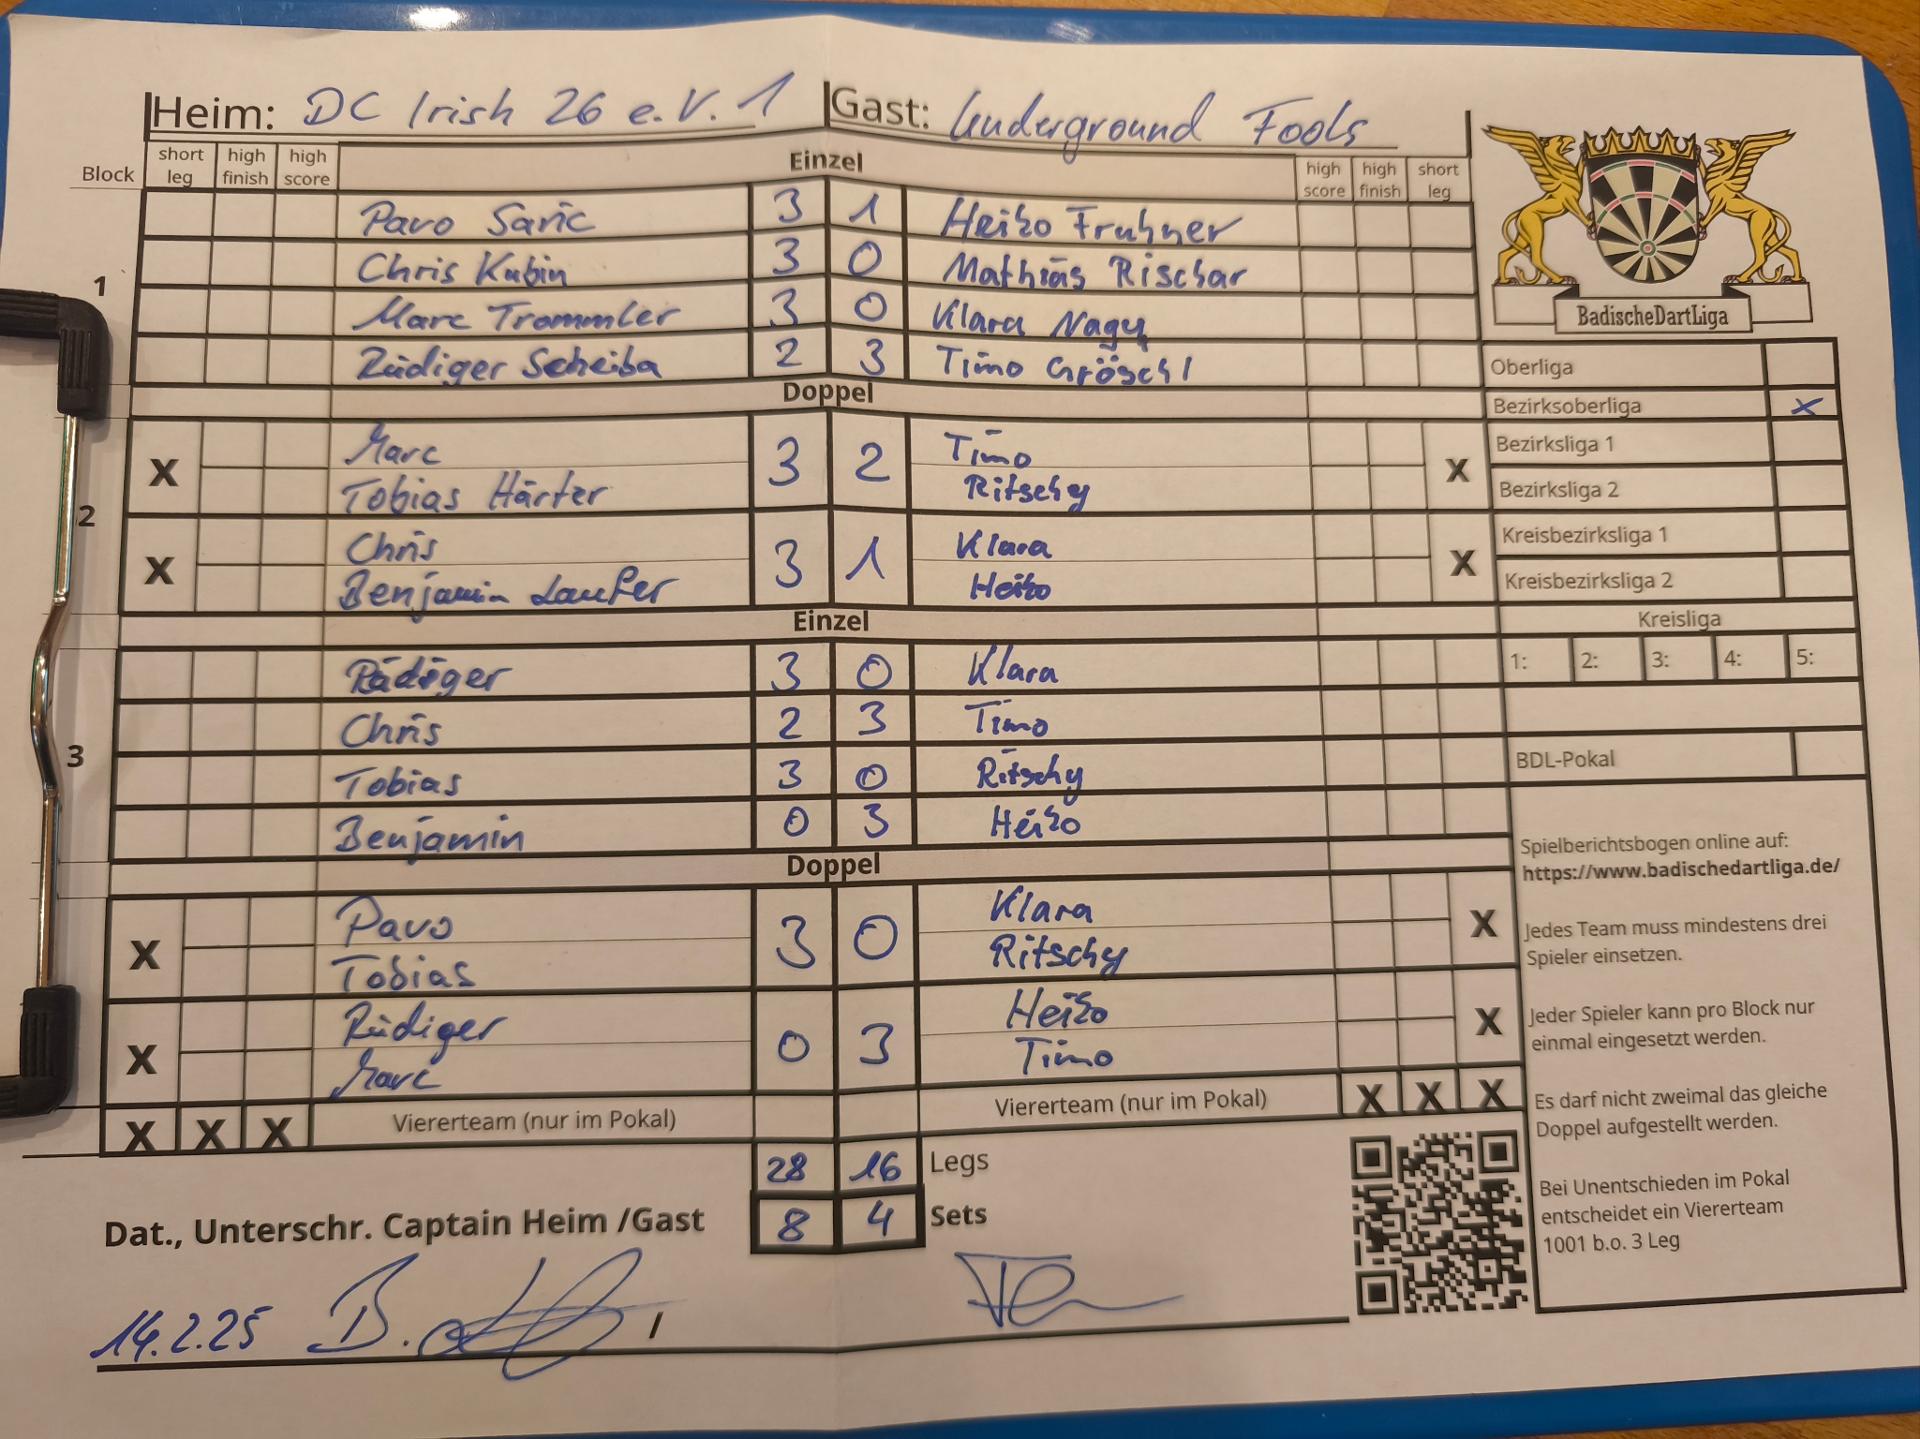 Heim: DC Irish 26 e.V. 1 Gast: Underground Fools
Block short leg high finish high score Einzel high score high finish short leg
1
Pavo Saric 3 1 Heiko Fruhner
Chris Kubin 3 0 Mathias Rischar
Marc Trommler 3 0 Klara Nagy
Rüdiger Scheiba 2 3 Timo Gröschl
Doppel
2
X Marc 3 2 Timo X
Tobias Härter Ritschy
X Chris 3 1 Klara X
Benjamin Laufer Heiko
Einzel
3
Rüdiger 3 0 Klara
Chris 2 3 Timo
Tobias 3 0 Ritschy
Benjamin 0 3 Heiko
Doppel
X Pavo 3 0 Klara X
Tobias Ritschy
X Rüdiger 0 3 Heiko X
Marc Timo
X X X Viererteam (nur im Pokal) Viererteam (nur im Pokal) X X X
28 16 Legs
Dat., Unterschr. Captain Heim /Gast 8 4 Sets
14.2.25 B. /
BadischeDartLiga
Oberliga
Bezirksoberliga x
Bezirksliga 1
Bezirksliga 2
Kreisbezirksliga 1
Kreisbezirksliga 2
Kreisliga
1: 2: 3: 4: 5:
BDL-Pokal
Spielberichtsbogen online auf:
https://www.badischedartliga.de/
Jedes Team muss mindestens drei
Spieler einsetzen.
Jeder Spieler kann pro Block nur
einmal eingesetzt werden.
Es darf nicht zweimal das gleiche
Doppel aufgestellt werden.
Bei Unentschieden im Pokal
entscheidet ein Viererteam
1001 b.o. 3 Leg